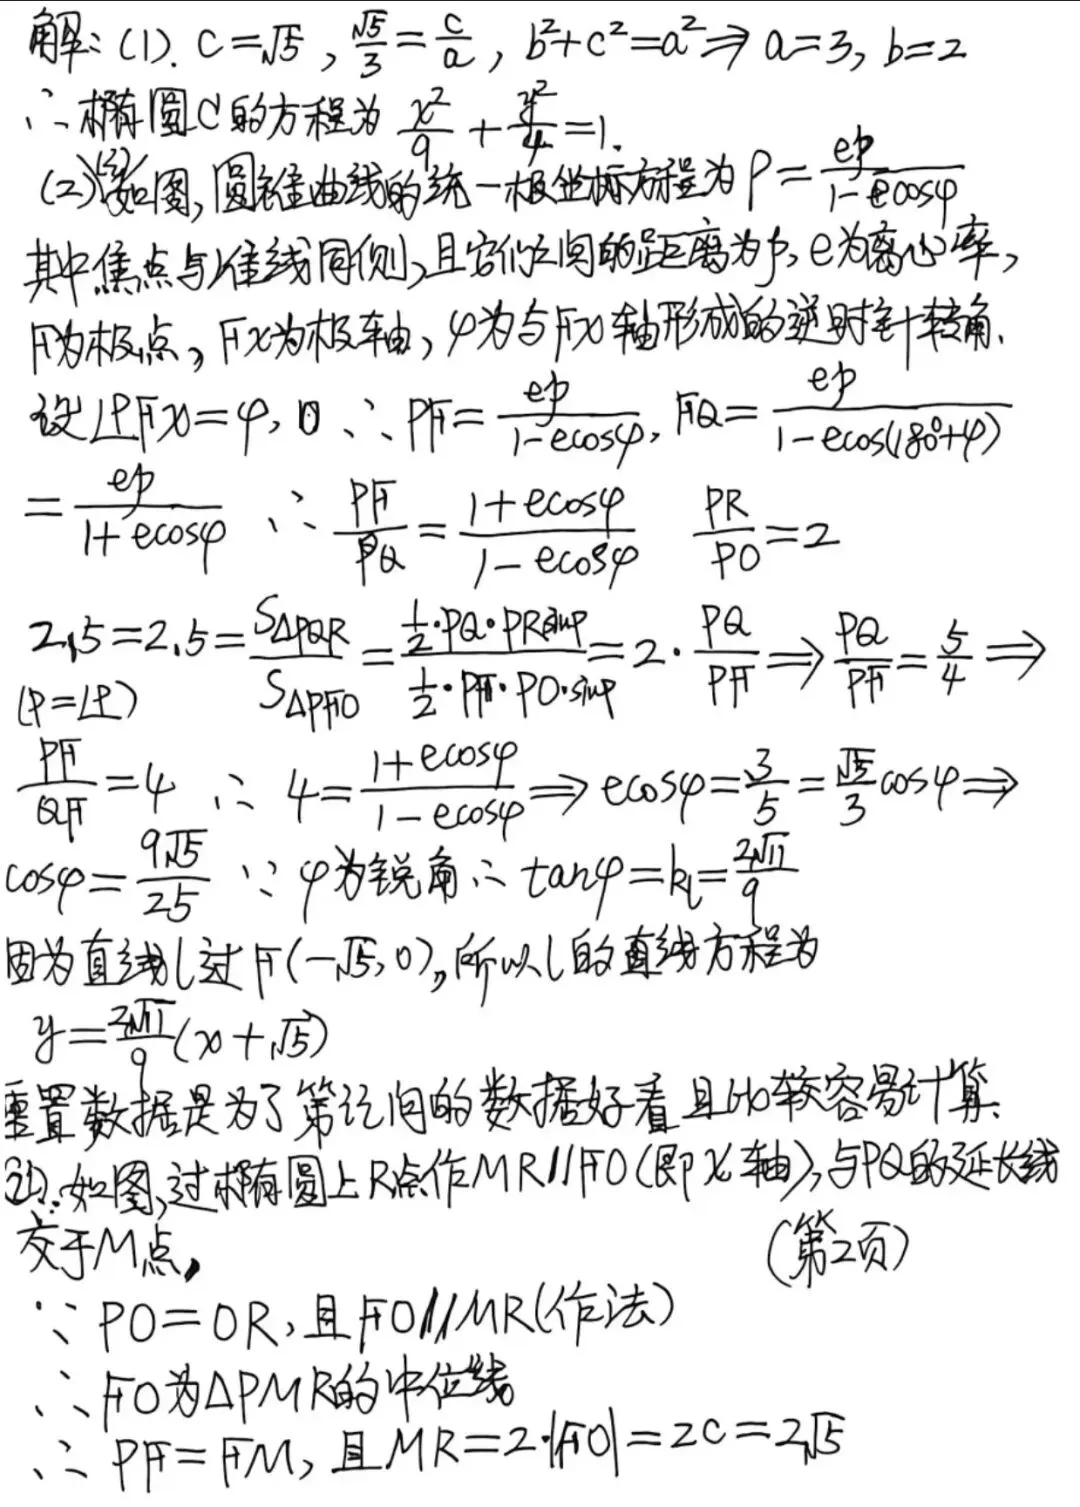 解: (1). c=√5, √5/3=c/a, b²+c²=a²⇒a=3, b=2
∴椭圆C的方程为 x²/9+y²/4=1.
(2)(i)如图,圆锥曲线的统一极坐标方程为ρ=ep/(1-ecosφ)
其中焦点与准线同侧,且它们之间的距离为p,e为离心率,
F为极点,Fx为极轴,φ为与Fx轴形成的逆时针转角.
设∠PFx=φ, ∴PF=ep/(1-ecosφ), FQ=ep/(1-ecos(180°+φ))
=ep/(1+ecosφ) ∴PF/PQ=(1+ecosφ)/(1-ecosφ) PR/PO=2
2.5=2.5=S△PQR/S△PFO=(1/2·PQ·PRsinP)/(1/2·PF·PO·sinP)=2·PQ/PF⇒PQ/PF=5/4⇒
(P=∠P)
PF/QF=4 ∴4=(1+ecosφ)/(1-ecosφ)⇒ecosφ=3/5=√5/3cosφ⇒
cosφ=9√5/25 ∵φ为锐角∴tanφ=kl=2√11/9
因为直线l过F(-√5,0),所以l的直线方程为
y=2√11/9(x+√5)
重置数据是为了第ii问的数据好看且比较容易计算.
(ii).如图,过椭圆上R点作MR//FO(即x轴),与PQ的延长线
交于M点, (第2页)
∵PO=OR,且FO//MR(作法)
∴FO为△PMR的中位线
∴PF=FM,且MR=2·|FO|=2c=2√5